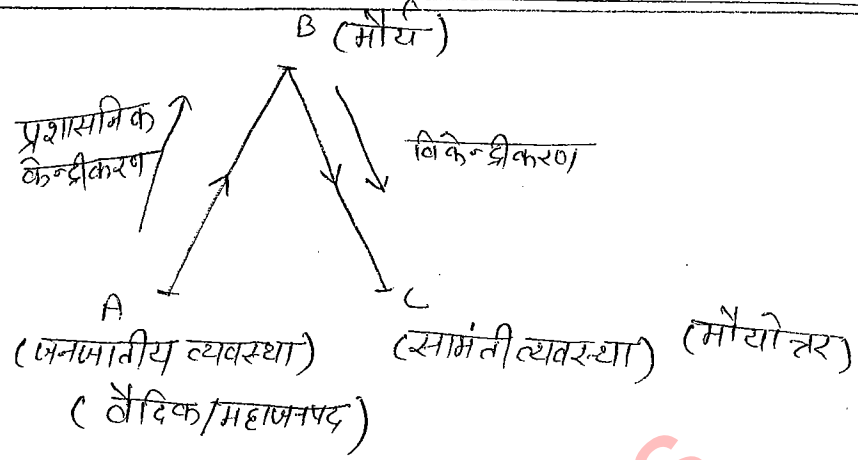 B (मौर्य)
प्रशासनिक
केन्द्रीकरण
विकेन्द्रीकरण
A
(जनजातीय व्यवस्था)
(वैदिक/महाजनपद)
C
(सामंती व्यवस्था)
(मौर्योत्तर)